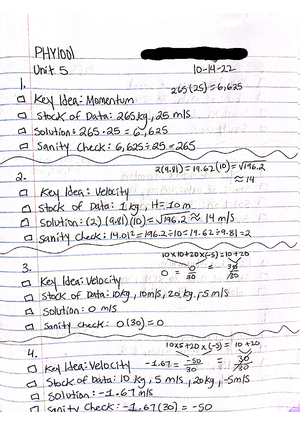 PHY1001
Unit 5
10-14-22
1.
265(25) = 6,625
□ Key Idea: Momentum
□ Stock of Data: 265kg, 25 m/s
□ Solution: 265·25 = 6,625
□ Sanity Check: 6,625÷25 = 265
2(9.81) = 19.62(10) = √196.2
≈ 14
2.
□ Key Idea: Velocity
□ Stock of Data: 1 kg, H= 10 m
□ Solution: (2)(9.81)(10) = √196.2 ≈ 14 m/s
□ Sanity Check: 14.01² = 196.2÷10 = 19.62÷9.81 = 2
10×10+20×(-5) = 10+20
3.
0 = 0/30 = 30/30
□ Key Idea: Velocity
□ Stock of Data: 10kg, 10m/s, 20 kg, -5 m/s
□ Solution: 0 m/s
□ Sanity Check: 0(30) = 0
10×5+20×(-5) = 10+20
4.
-1.67 = -50/30 = 30/30
□ Key Idea: Velocity
□ Stock of Data: 10 kg, 5 m/s, 20kg, -5m/s
□ Solution: -1.67 m/s
□ Sanity Check: -1.67(30) = -50